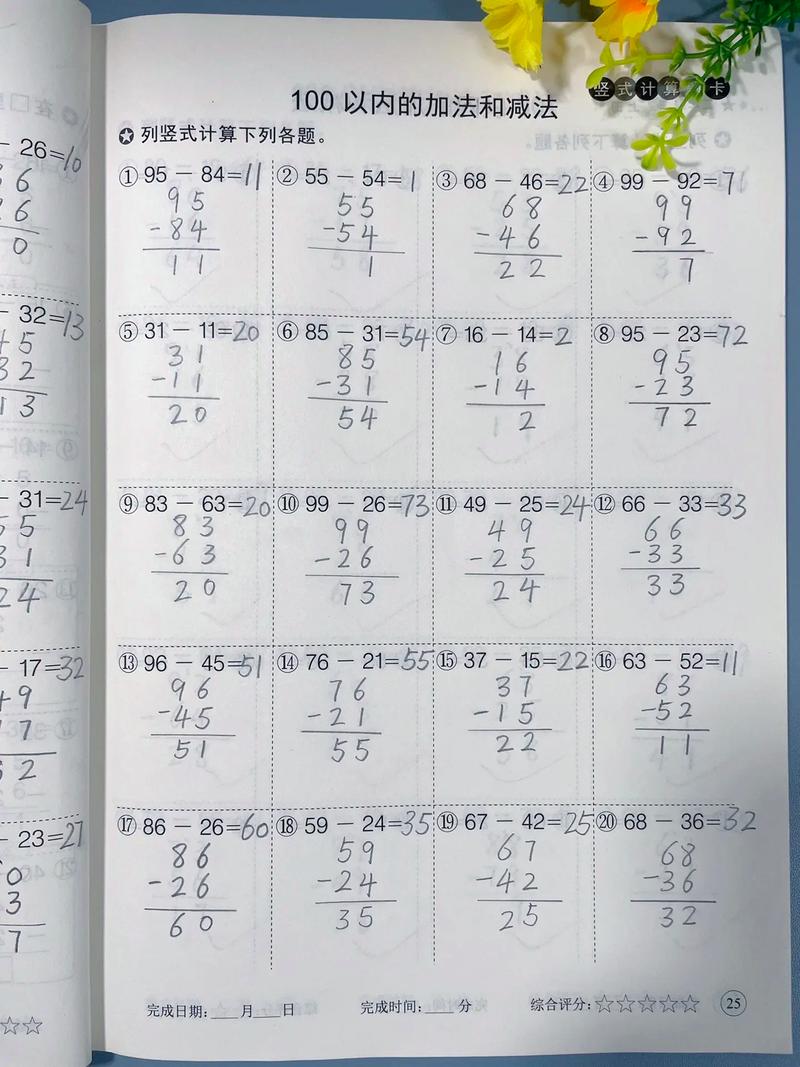 竖式计算 卡
100 以内的加法和减法
列竖式计算下列各题。
① 95 − 84=11
95
−84
11
② 55 − 54=1
55
−54
1
③ 68 − 46=22
68
−46
22
④ 99 − 92=7
99
−92
7
⑤ 31 − 11=20
31
−11
20
⑥ 85 − 31=54
85
−31
54
⑦ 16 − 14=2
16
−14
2
⑧ 95 − 23=72
95
−23
72
⑨ 83 − 63=20
83
−63
20
⑩ 99 − 26=73
99
−26
73
⑪ 49 − 25=24
49
−25
24
⑫ 66 − 33=33
66
−33
33
⑬ 96 − 45=51
96
−45
51
⑭ 76 − 21=55
76
−21
55
⑮ 37 − 15=22
37
−15
22
⑯ 63 − 52=11
63
−52
11
⑰ 86 − 26=60
86
−26
60
⑱ 59 − 24=35
59
−24
35
⑲ 67 − 42=25
67
−42
25
⑳ 68 − 36=32
68
−36
32
完成日期:___月___日 完成时间:___分 综合评分:☆☆☆☆☆ 25
− 26=10
6
6
0
− 32=13
45
32
13
− 31=24
55
31
24
− 17=32
49
17
32
− 23=27
0
3
7
☆☆